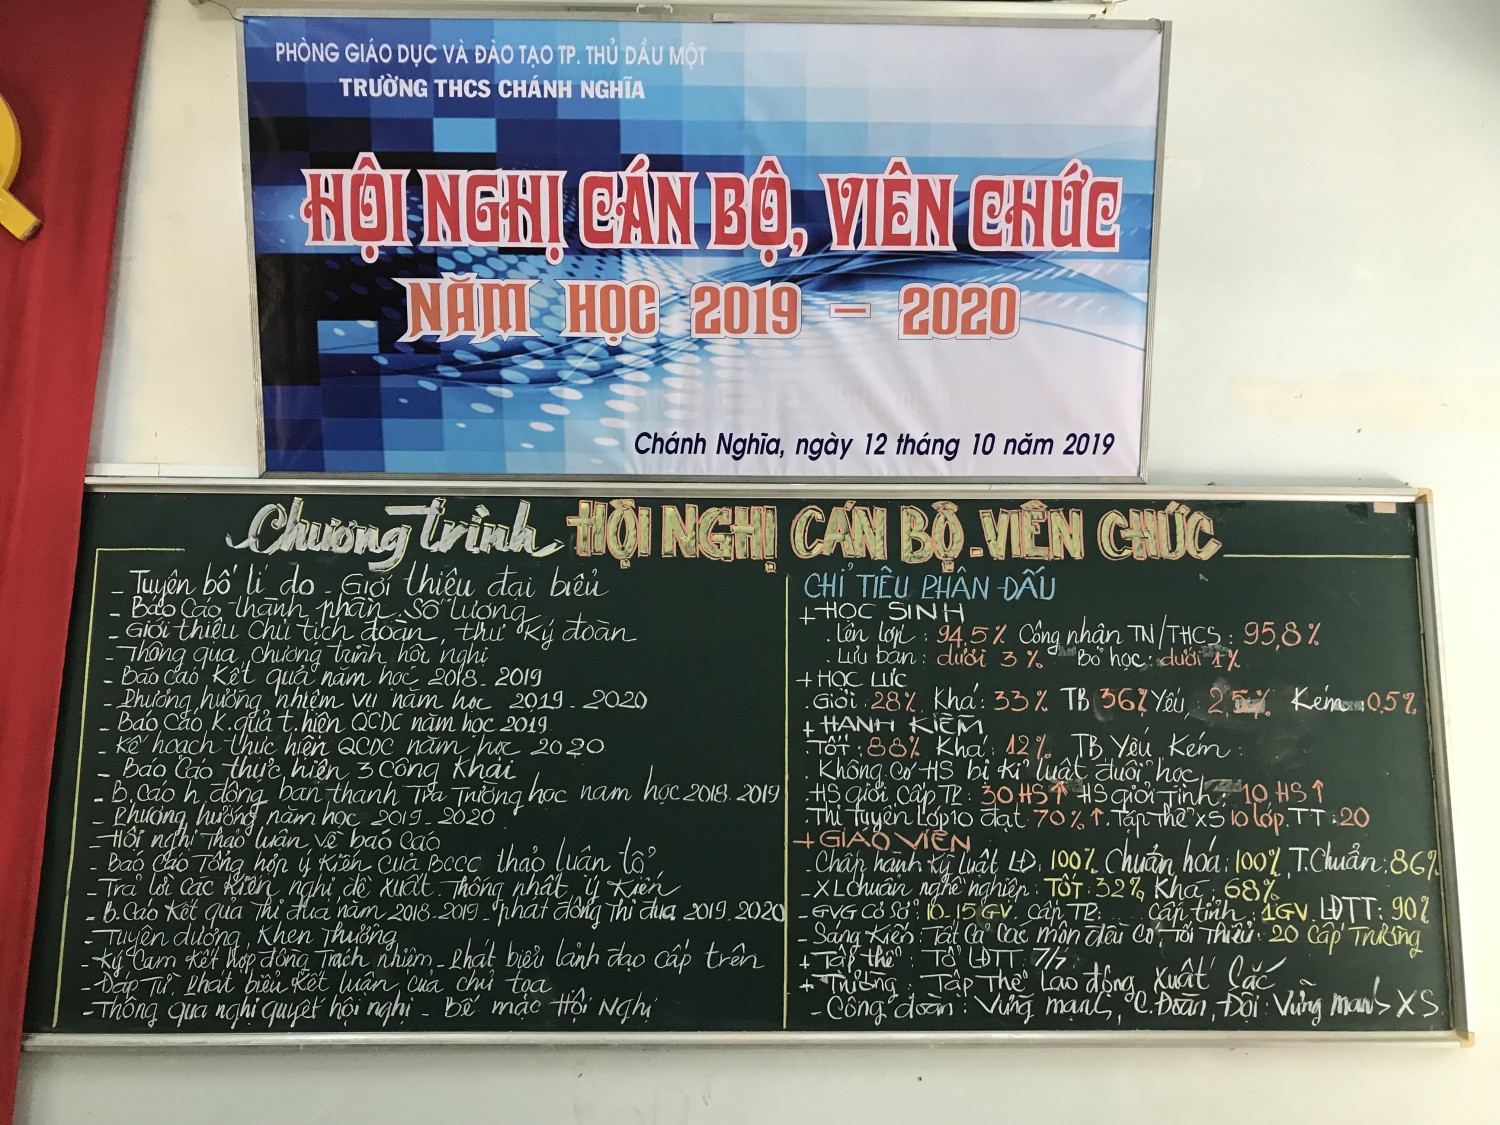 PHÒNG GIÁO DỤC VÀ ĐÀO TẠO TP. THỦ DẦU MỘT
TRƯỜNG THCS CHÁNH NGHĨA
HỘI NGHỊ CÁN BỘ, VIÊN CHỨC
NĂM HỌC 2019 – 2020
Chánh Nghĩa, ngày 12 tháng 10 năm 2019
Chương trình HỘI NGHỊ CÁN BỘ - VIÊN CHỨC
- Tuyên bố lí do - Giới thiệu đại biểu
- Báo cáo thành phần, số lượng
- Giới thiệu chủ tịch đoàn, thư ký đoàn
- Thông qua chương trình hội nghị
- Báo cáo kết quả năm học 2018-2019
- Phương hướng nhiệm vụ năm học 2019-2020
- Báo cáo k.quả t.hiện QCDC năm học 2019
- Kế hoạch thực hiện QCDC năm học 2020
- Báo cáo thực hiện 3 công khai
- B.cáo h động ban thanh tra trường học năm học 2018-2019
- Phương hướng năm học 2019-2020
- Hội nghị thảo luận về báo cáo
- Báo cáo tổng hợp ý kiến của BCCC thảo luận tổ
- Trả lời các kiến nghị, đề xuất thống nhất ý kiến
- B.cáo kết quả thi đua năm 2018-2019 - phát động thi đua 2019-2020
- Tuyên dương, khen thưởng
- Ký cam kết hợp đồng trách nhiệm - Phát biểu lãnh đạo cấp trên
- Đáp từ, phát biểu kết luận của chủ tọa
- Thông qua nghị quyết hội nghị - Bế mạc Hội Nghị
CHỈ TIÊU PHẤN ĐẤU
+ HỌC SINH
. Lên lớp: 94,5% Công nhận TN/THCS: 95,8%
. Lưu ban: dưới 3% Bỏ học: dưới 1%
+ HỌC LỰC
. Giỏi: 28% Khá: 33% TB 36% Yếu: 2,5% Kém: 0,5%
+ HẠNH KIỂM
. Tốt: 88% Khá: 12% TB Yếu Kém:
. Không có HS bị kỉ luật đuổi học
. HS giỏi cấp TP: 30 HS↑ HS giỏi tỉnh: 10 HS↑
. Thi tuyển lớp 10 đạt 70%↑. Tập thể XS 10 lớp. TT: 20
+ GIÁO VIÊN
- Chấp hành kỷ luật LĐ: 100% Chuẩn hóa: 100%, T.Chuẩn: 86%
- XL chuẩn nghề nghiệp: TỐT: 32% Khá: 68%
- GVG cơ sở: 10-15 GV. cấp TP: ... cấp tỉnh: 1 GV. LĐTT: 90%
- Sáng kiến: tất cả các môn đều có, tối thiểu: 20 cấp trường
+ Tập thể: Tổ LĐTT 7/7
+ Trường: Tập thể Lao động xuất sắc
- Công đoàn: Vững mạnh, C.Đoàn, Đội: Vững mạnh XS